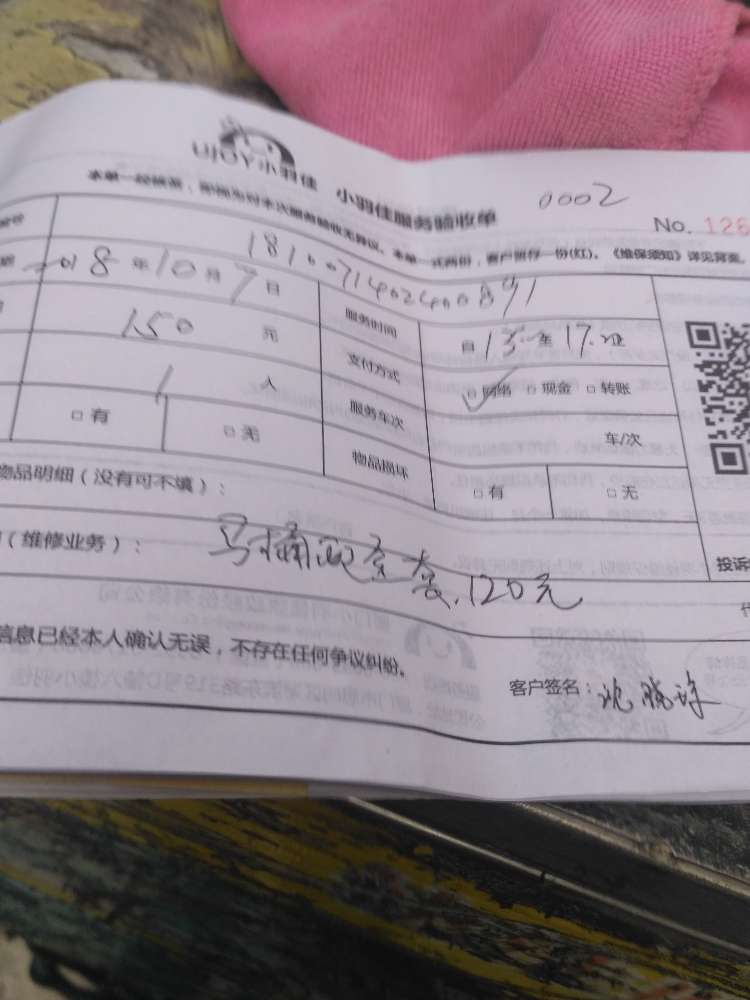 UJOY小羽佳 小羽佳服务验收单 0002
No. 126
本单一经核签,即视为对本次服务验收无异议。本单一式两份,客户留存一份(红)。《维保须知》详见背面。
1810071402400891
2018年10月7日 服务时间 自13:00至17:00止
150元 支付方式 □网络 □现金 □转账
1人 服务车次 车/次
□有 □无 物品损坏 □有 □无
物品明细(没有可不填):
(维修业务): 马桶 120元
投诉
信息已经本人确认无误,不存在任何争议纠纷。
客户签名: